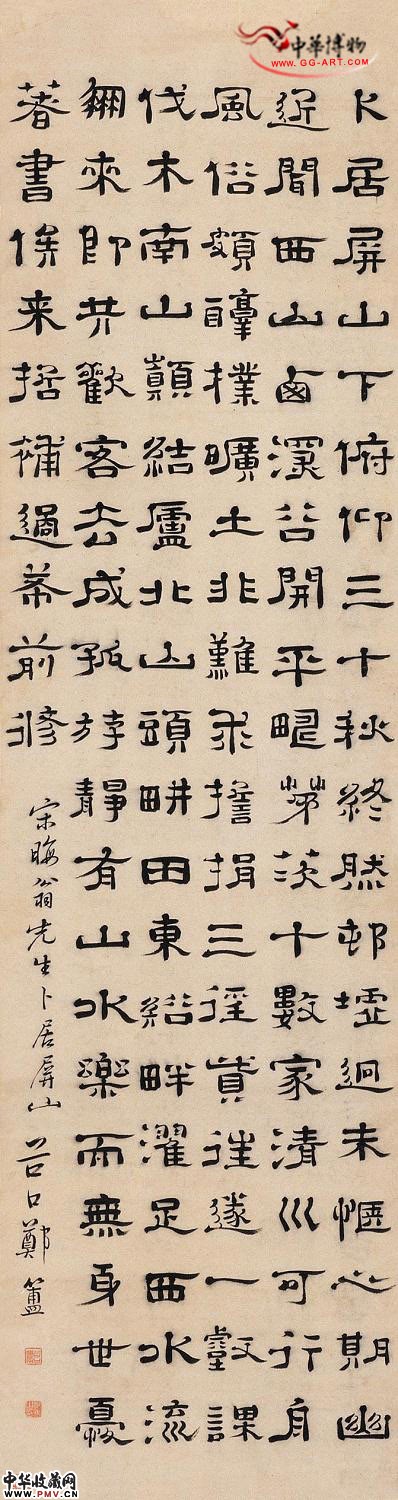 中華博物
WWW.GG-ART.COM
卜居屏山下俯仰三十秋終然邨墟迥未愜心期幽
近聞西山鹵深谷開平疇茅茨十數家清川可行舟
風俗頗醇樸曠土非難求捐三徑貲往遂一壑謀
伐木南山巔結廬北山頭畊田東谿畔濯足西水流
來即共歡客去成孤斿靜有山水樂而無身世憂
著書俟来哲補過希前修
宋晦翁先生卜居屏山 谷口鄭簠
中华收藏网
WWW.PMV.CN